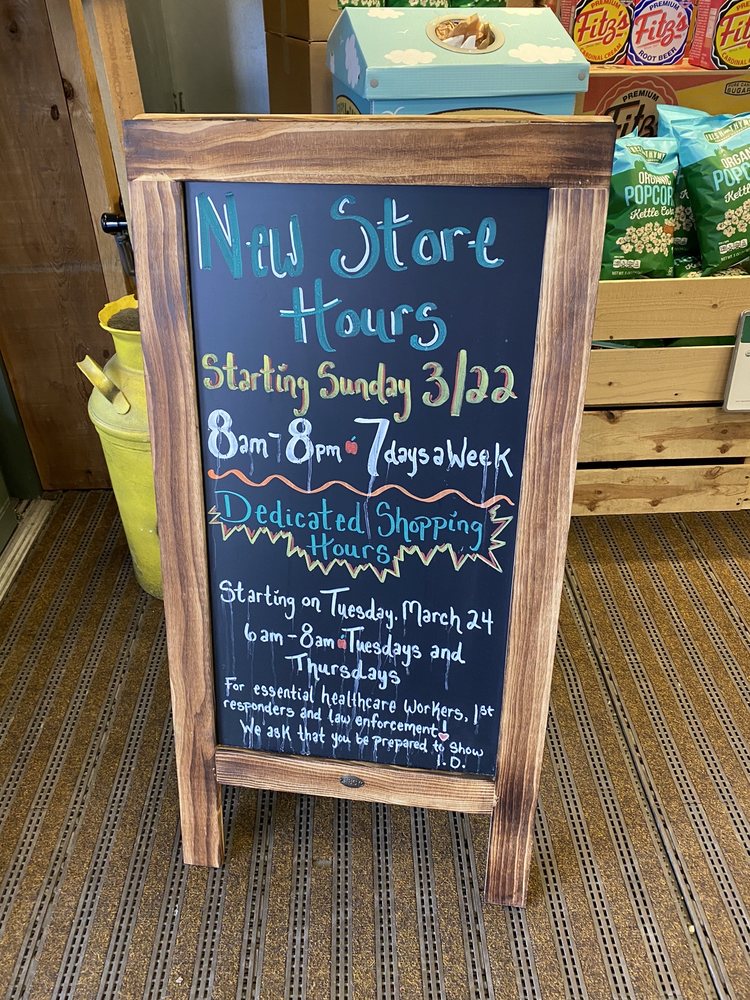 New Store
Hours
Starting Sunday 3/22
8am-8pm 7 days a Week
Dedicated Shopping
Hours
Starting on Tuesday, March 24
6am-8am Tuesdays and
Thursdays
For essential healthcare workers, 1st
responders and law enforcement!
We ask that you be prepared to show
I.D.
PREMIUM
Fitz's
CARDINAL CREAM
PREMIUM
Fitz's
ROOT BEER
Fitz's
CARDINAL
PURE CANE
SUGAR
PREMIUM
Fitz's
ORGANIC
POPCOR
Kettle Co
ORGANIC
POPC
Kettle